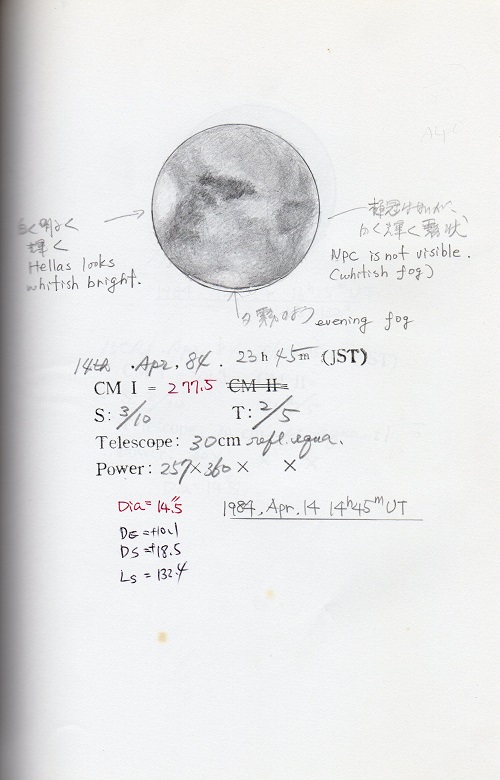 白く明るく
輝く
Hellas looks
whitish bright.
白く輝く霧状
NPC is not visible.
(whitish fog)
evening fog
14th .Apr, 84. 23h 45m (JST)
CM I = 277.5 CM II=
S: 3/10 T: 2/5
Telescope: 30cm refl. equa.
Power: 257× 360× ×
Dia= 14.5″
1984, Apr. 14 14h45m UT
DE = +10.1
DS = +18.5
Ls = 132.4